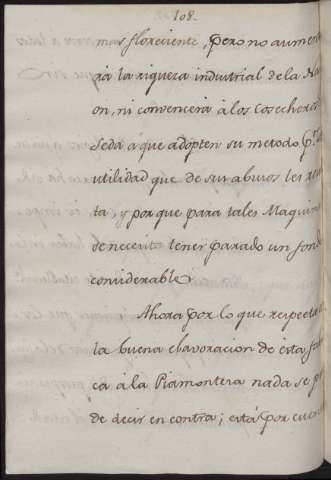 108.
mas floreciente, pero no aumen
ra la riqueza industrial de la Na
on, ni convencera â los Cosecheros
Seda a que adopten su metodo p.r
utilidad que de sus abusos les resu
ta, y porque para tales Maquin
se necesita tener parado un fond
considerable.
Ahora por lo que respecta
la buena elavoracion de esta
ca â la Piamontesa nada se p
de decir en contra; està por